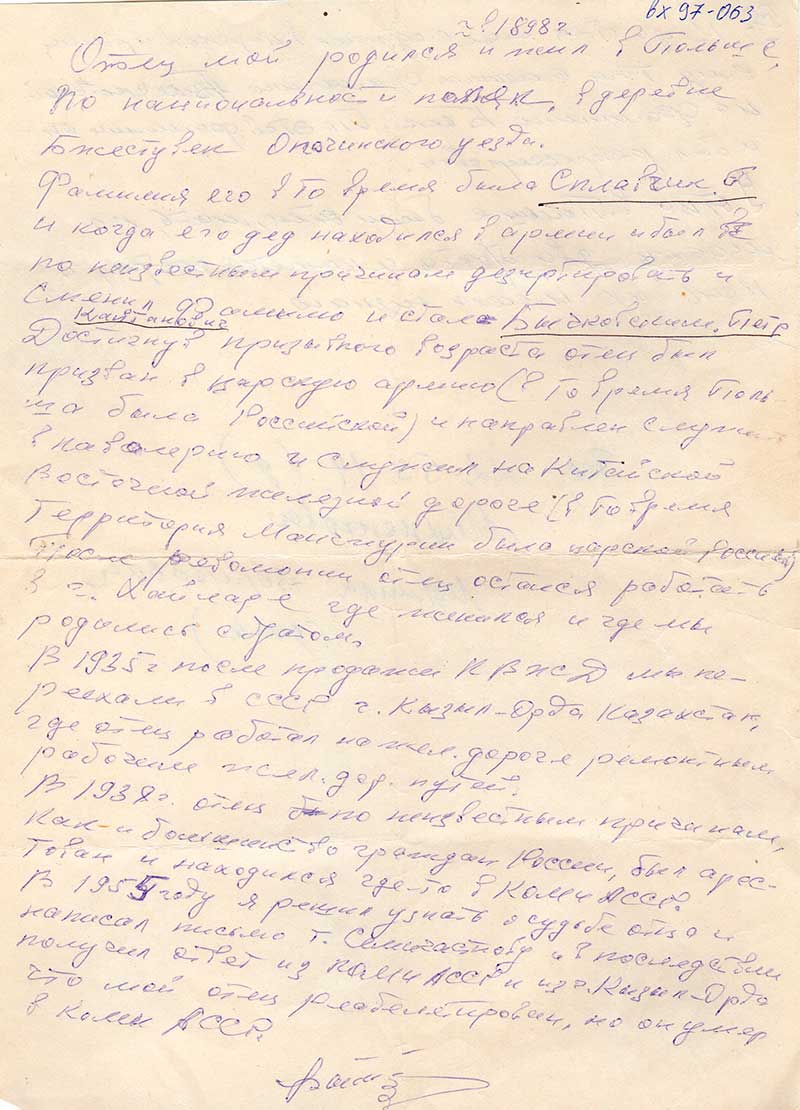 вх 97-063
≈ в 1898 г.
Отец мой родился и жил в Польше,
по национальности поляк, в деревне
Бжестувек Опочинского уезда.
Фамилия его в то время была Сплавчик.
и когда его дед находился в армии и был
по неизвестным причинам дезиртировать и
сменил фамилию и стал Бычковским. Петр
Каитанович
Достигнув призывного возраста отец был
призван в царскую армию (в то время Поль-
ша была Российской) и направлен служить
в кавалерию и служил на Китайской
Восточной железной дороге (в то время
территория Манчжурии была царской России)
После революции отец остался работать
в г. Хайларе где женился и где мы
родились с братом.
В 1935 г после продажи КВЖД мы пе-
реехали в СССР г. Кызыл-Орда Казахстан,
где отец работал на жел. дороге ремонтным
рабочим жел. дор. путей.
В 1938 г. отец по неизвестным причинам,
как и большинство граждан России, был арес-
тован и находился где-то в Коми АССР.
В 1955 году я решил узнать о судьбе отца и
написал письмо т. Семичастному и в последствии
получил ответ из Коми АССР и из г. Кызыл-Орда
что мой отец реабелетирован, но он умер
в Коми АССР.